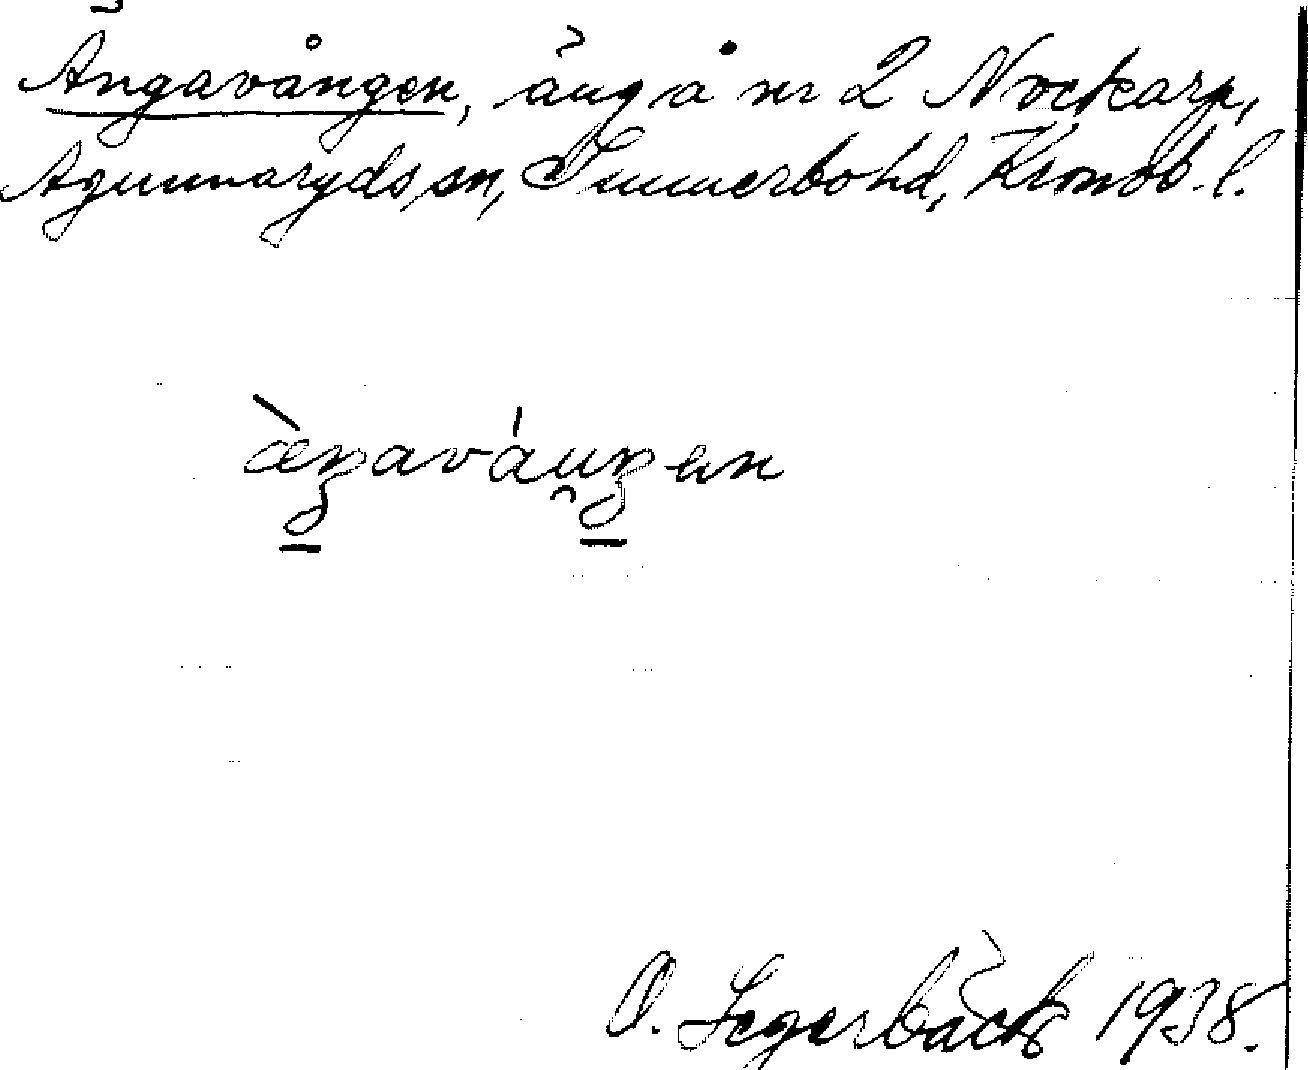 Ängavången, äng å nr 2 Nockarp,
Agunnaryds sn, Sunnerbo hd, Kronob. l.
æŋavåuŋen
O. Segerbäck 1938.